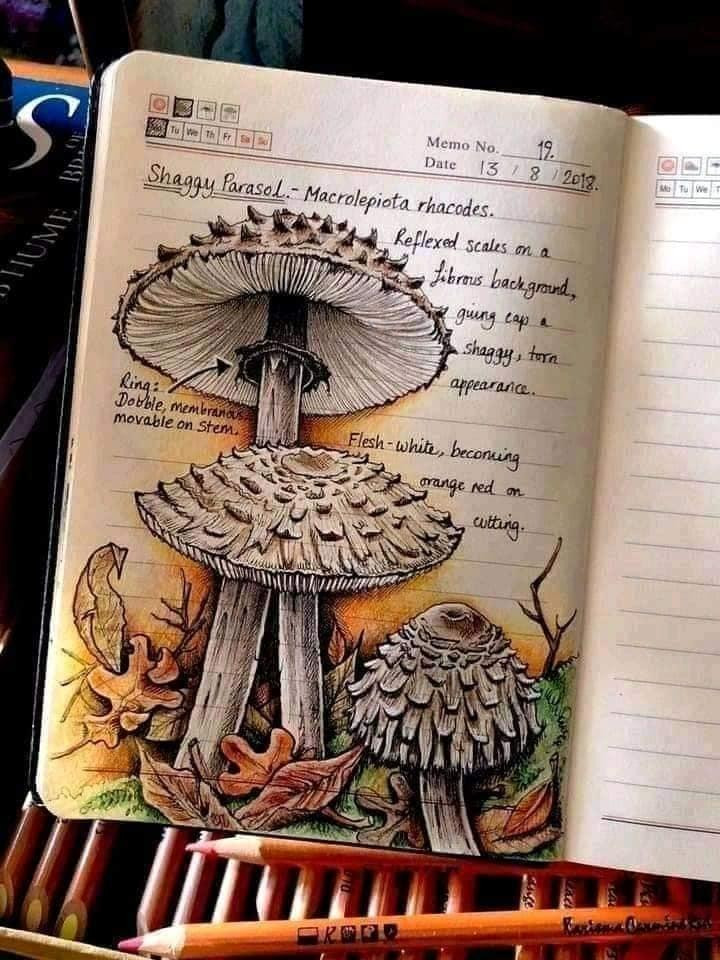 Tu We Th Fr Sa Su
Memo No. 19.
Date 13 / 8 / 2018.
Mo Tu We
Shaggy Parasol. - Macrolepiota rhacodes.
Reflexed scales on a
fibrous background,
giving cap a
shaggy, torn
appearance.
Ring:
Double, membranous
movable on Stem.
Flesh - white, becoming
orange red on
cutting.
S
HUME
Karisma Carmine Red